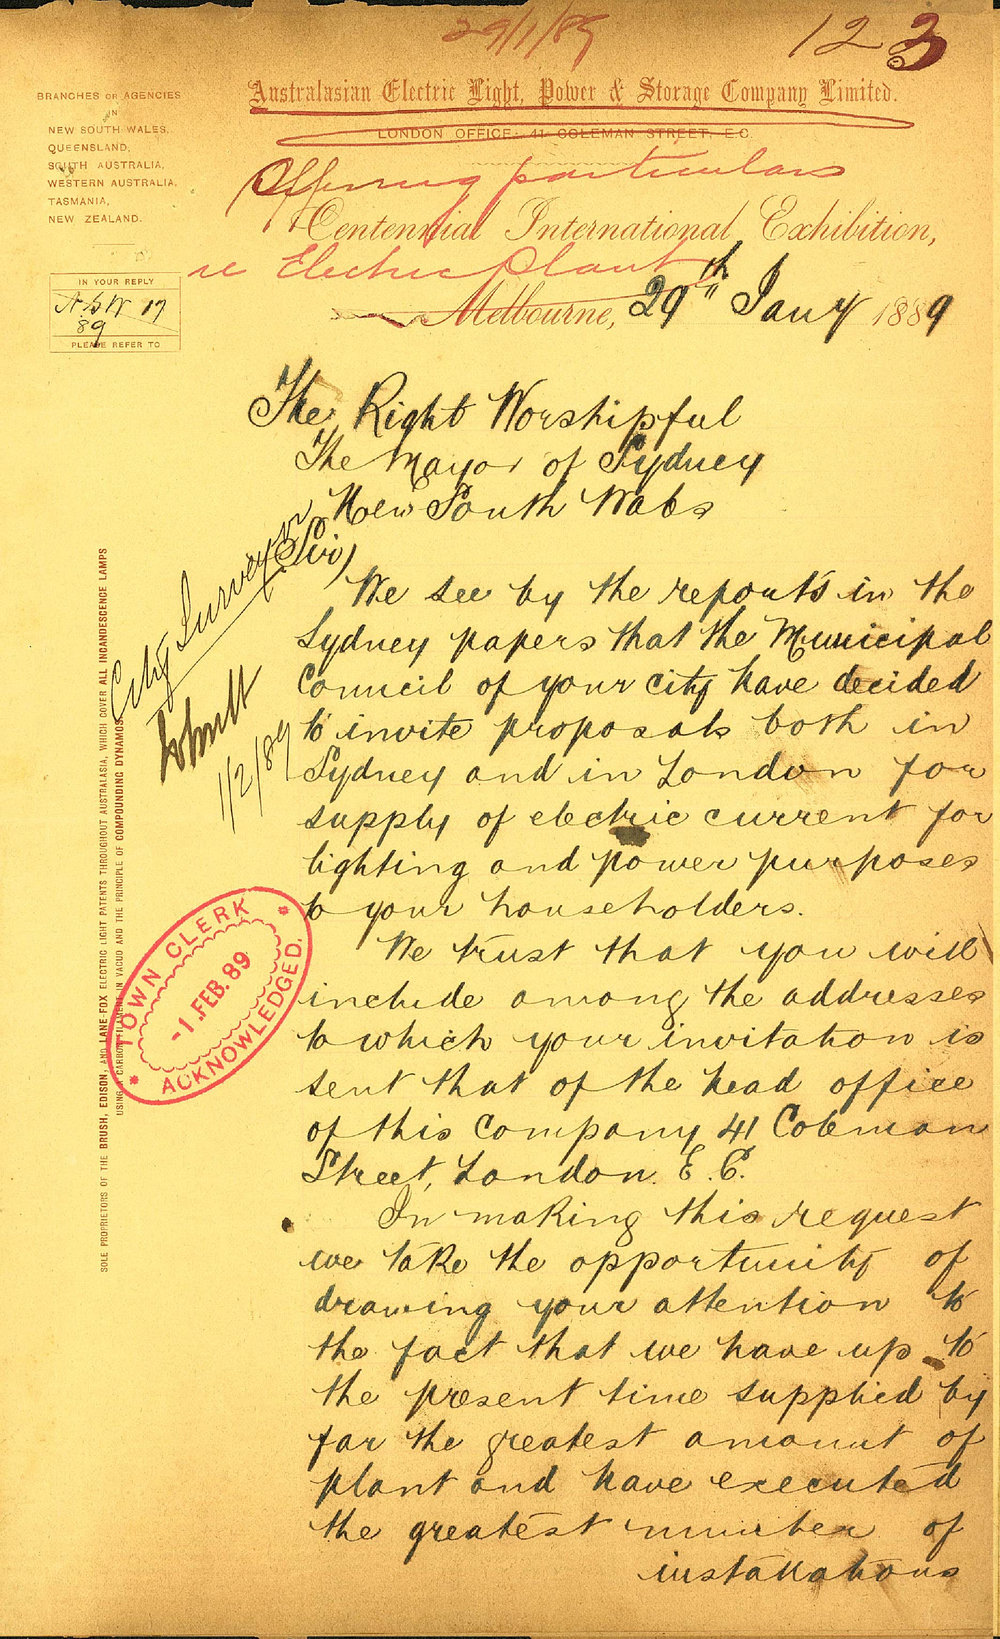 29/1/89
12 3
BRANCHES OR AGENCIES
IN
NEW SOUTH WALES,
QUEENSLAND,
SOUTH AUSTRALIA,
WESTERN AUSTRALIA,
TASMANIA,
NEW ZEALAND.
Australasian Electric Light, Power & Storage Company Limited.
LONDON OFFICE: 41 COLEMAN STREET, E.C.
Offering particulars
Centennial International Exhibition,
re Electric Plant
Melbourne, 29th Jany 1889
IN YOUR REPLY
17
89
PLEASE REFER TO
The Right Worshipful
The Mayor of Sydney
New South Wales
Sir,
We see by the reports in the
Sydney papers that the Municipal
Council of your city have decided
to invite proposals both in
Sydney and in London for
supply of electric current for
lighting and power purposes
to your householders.
We trust that you will
include among the addresses
to which your invitation is
sent that of the head office
of this Company 41 Coleman
Street, London. E.C.
In making this request
we take the opportunity of
drawing your attention to
the fact that we have up to
the present time supplied by
far the greatest amount of
plant and have executed
the greatest number of
installations
City Surveyor
1/2/89
TOWN CLERK
-1.FEB.89
ACKNOWLEDGED.
SOLE PROPRIETORS OF THE BRUSH, EDISON, AND LANE-FOX ELECTRIC LIGHT PATENTS THROUGHOUT AUSTRALASIA, WHICH COVER ALL INCANDESCENCE LAMPS
USING A CARBON FILAMENT IN VACUO AND THE PRINCIPLE OF COMPOUNDING DYNAMOS.